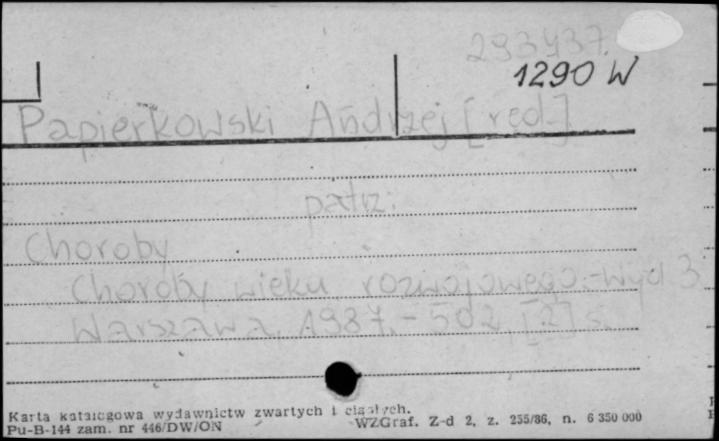 293437.
1290 W
Papierkowski Andrzej [red.]
patrz:
Choroby
Choroby wieku rozwojowego.-Wyd 3
Warszawa, 1987.- 502, [2] s.
Karta katalogowa wydawnictw zwartych i ciągłych.
Pu-B-144 zam. nr 446/DW/ON WZGraf. Z-d 2, z. 255/86, n. 6 350 000